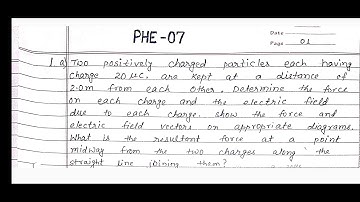 PHE-07
Date
Page 01
1. a) Two positively charged particles each having
charge 20 μC, are kept at a distance of
2.0m from each other. Determine the force
on each charge and the electric field
due to each charge. show the force and
electric field vectors on appropriate diagrams.
What is the resultent force at a point
midway from the two charges along the
straight line joining them?